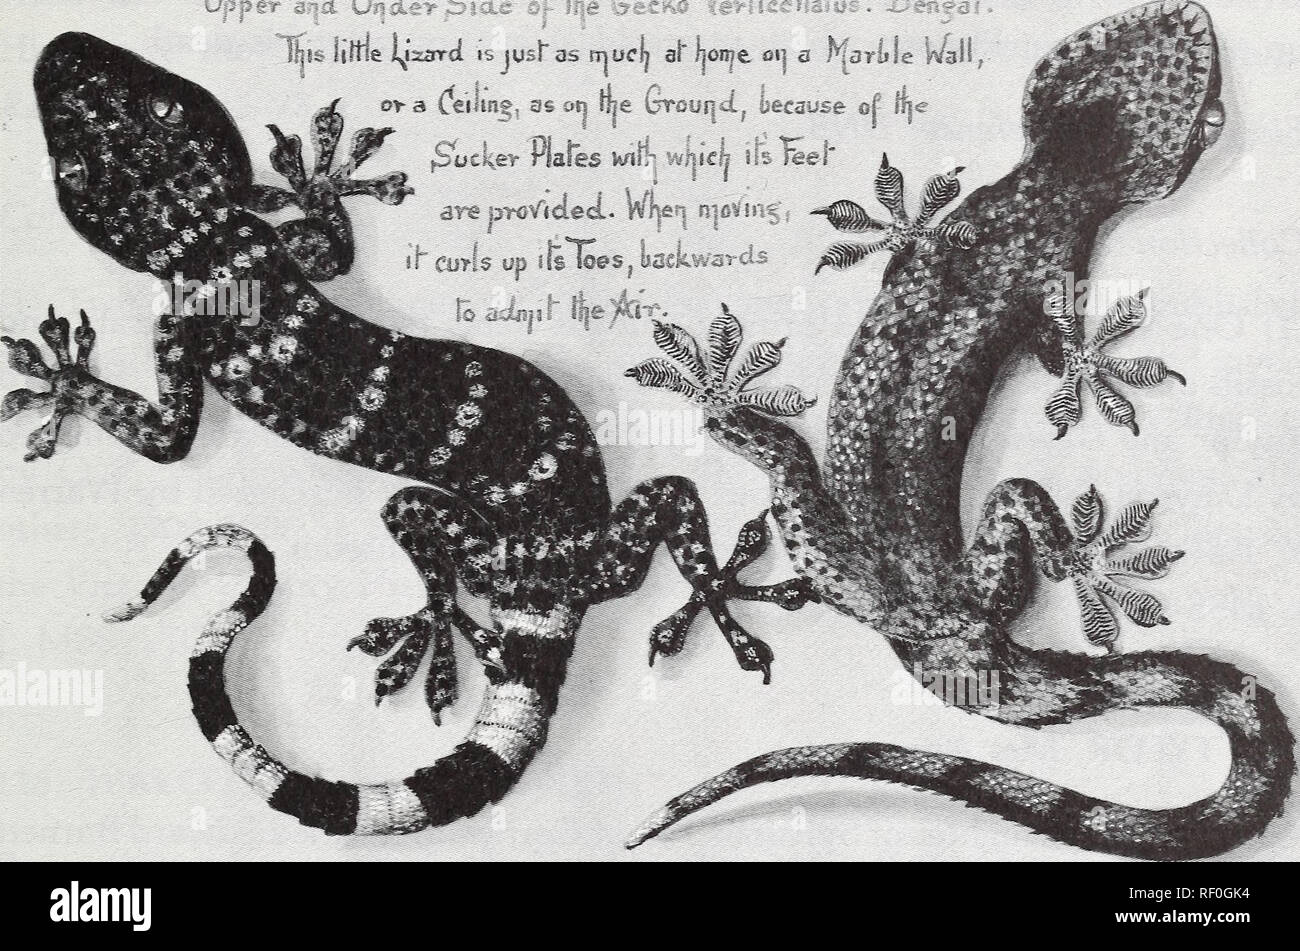 Upper and Under Side of the Gecko Verticellatus. Bengal.
This little Lizard is just as much at home on a Marble Wall,
or a Ceiling, as on the Ground, because of the
Sucker Plates with which it's Feet
are provided. When moving,
it curls up it's Toes, backwards
to admit the Air.
alamy
alamy
Image ID: RF0GK4
www.alamy.com